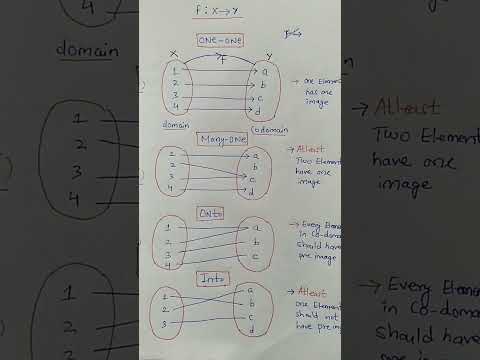 f: X→Y
ONE-ONE
X
f
Y
1
2
3
4
a
b
c
d
→ one Elem
has one
image
domain
Codomain
Many-one
1
2
3
4
a
b
c
d
→ Atleast
Two Element
have one
image
Onto
1
2
3
4
a
b
c
→ Every Elem
in Co-doma
should hav
pre image
Into
1
2
3
a
b
c
d
→ Atleast
one Element
should not
have pre im
domain
1
2
3
4
1
2
3
4
1
2
→ Atleast
Two Element
have one
image
→ Every Eleme
in Co-doma
should have